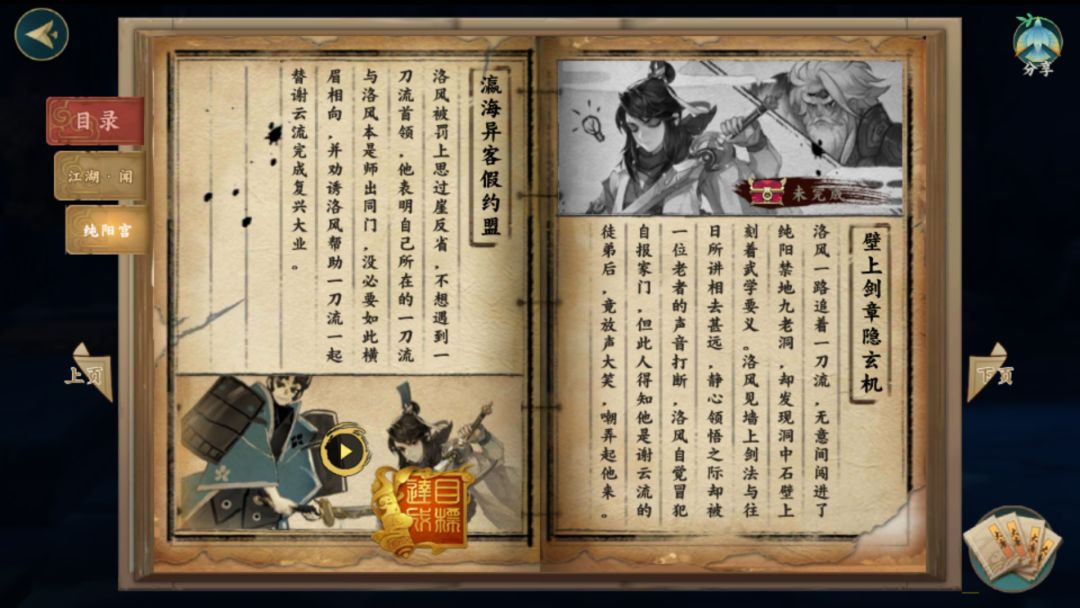 目录
江湖·闻
纯阳宫
上页
瀛海异客假约盟
洛风被罚上思过崖反省，不想遇到一
刀流首领，他表明自己所在的一刀流
与洛风本是师出同门，没必要如此横
眉相向，并劝诱洛风帮助一刀流一起
替谢云流完成复兴大业。
目標
達成
未完成
壁上剑章隐玄机
洛风一路追着一刀流，无意间闯进了
纯阳禁地九老洞，却发现洞中石壁上
刻着武学要义。洛风见墙上剑法与往
日所讲相去甚远，静心领悟之际却被
一位老者的声音打断，洛风自觉冒犯
自报家门，但此人得知他是谢云流的
徒弟后，竟放声大笑，嘲弄起他来。
分享
下页